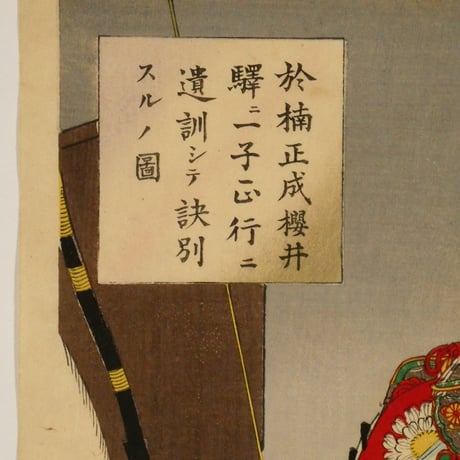 於楠正成櫻井
驛ニ一子正行ニ
遺訓シテ訣別
スルノ圖